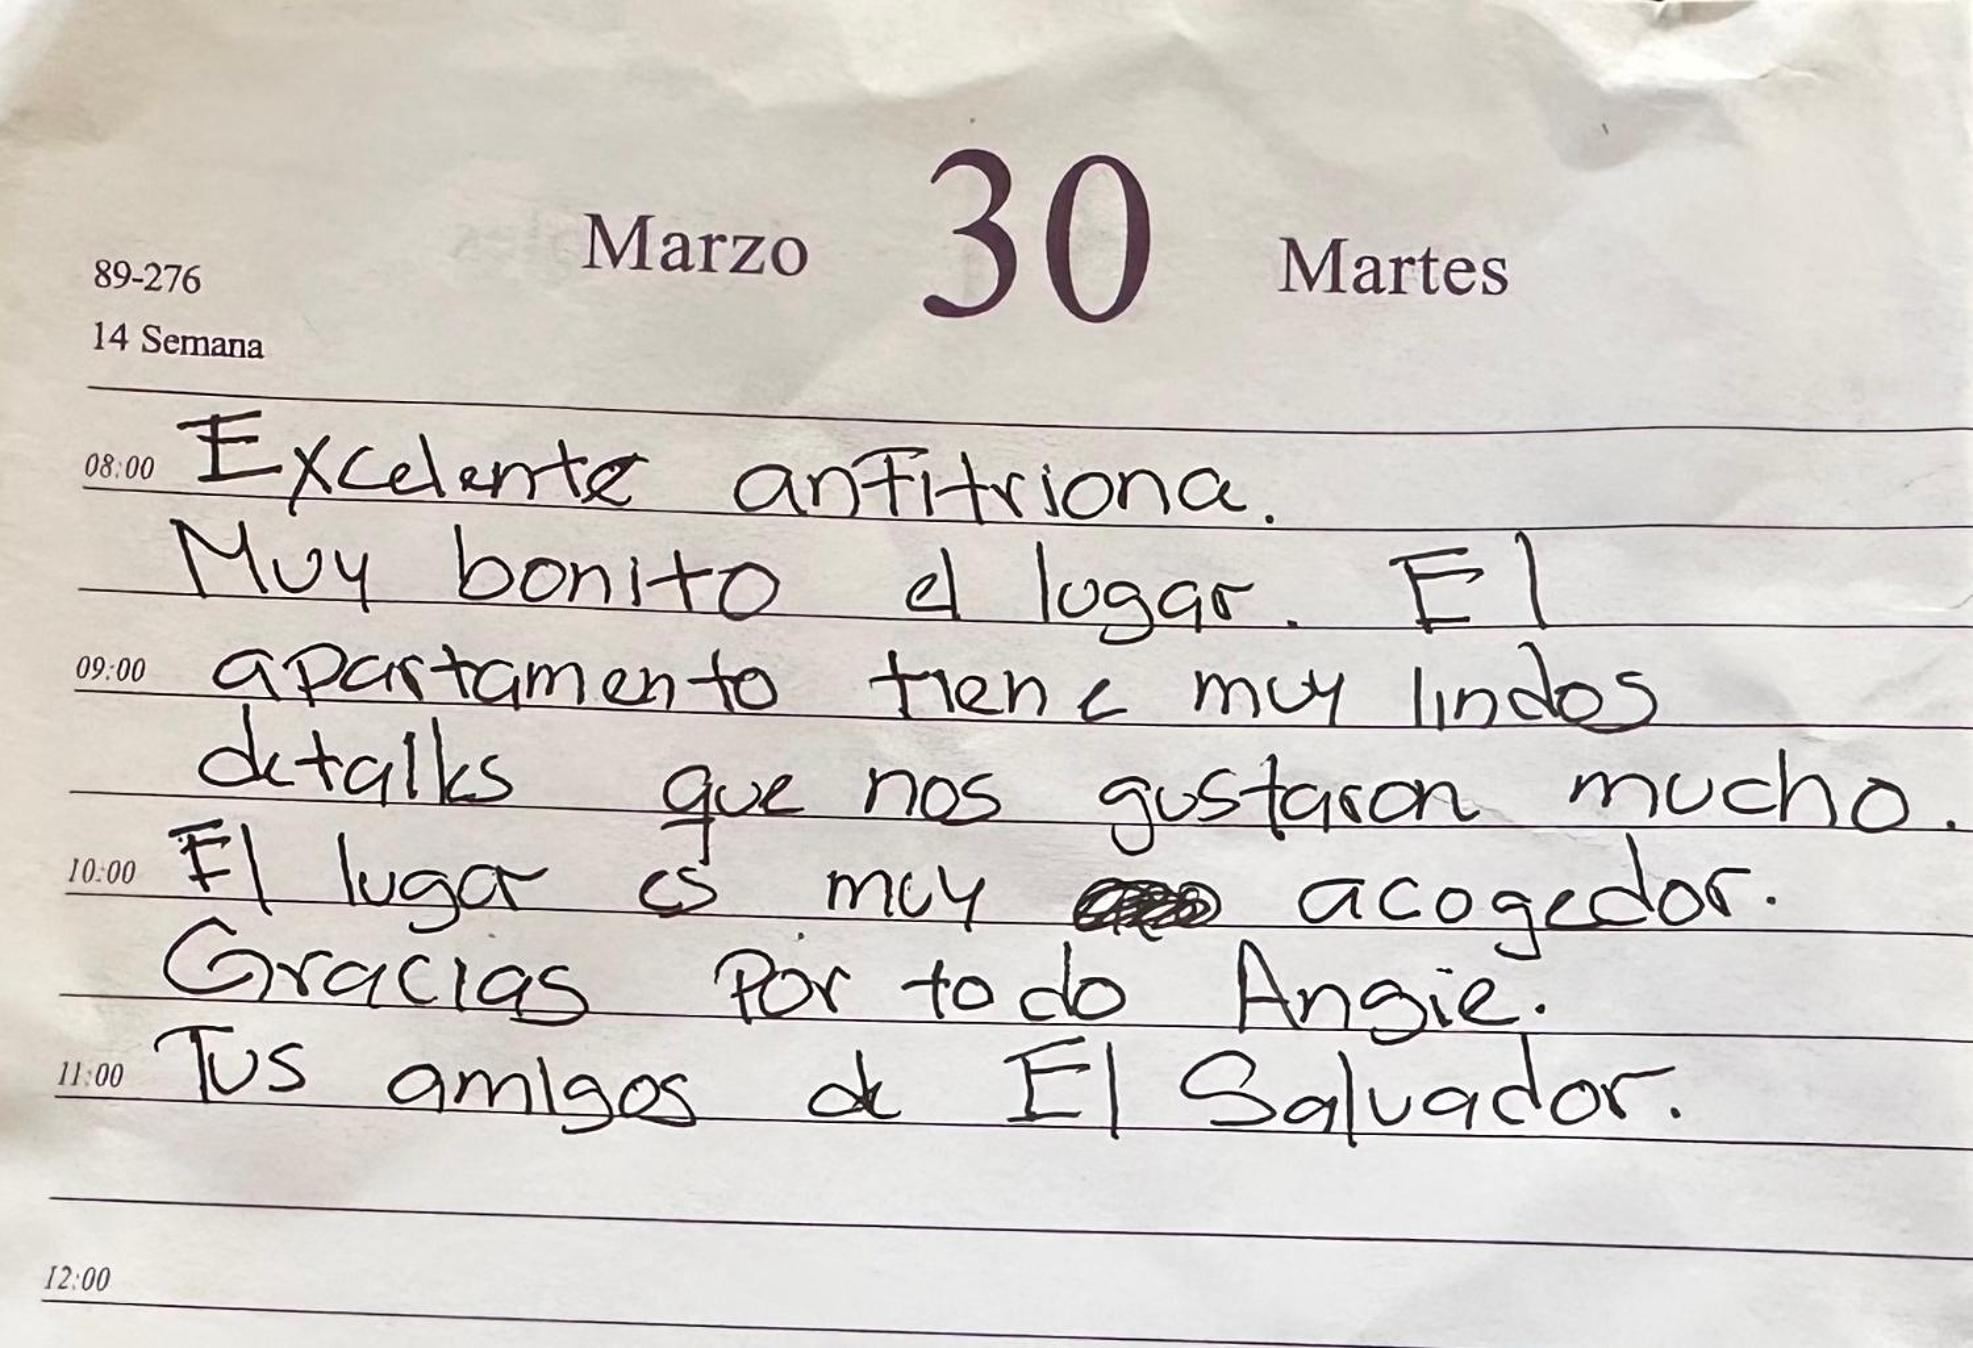 Marzo 30 Martes
89-276
14 Semana
08:00 Excelente anfitriona.
Muy bonito el lugar. El
09:00 apartamento tiene muy lindos
detalles que nos gustaron mucho.
10:00 El lugar es muy acogedor.
Gracias Por todo Angie.
11:00 Tus amigos de El Salvador.
12:00